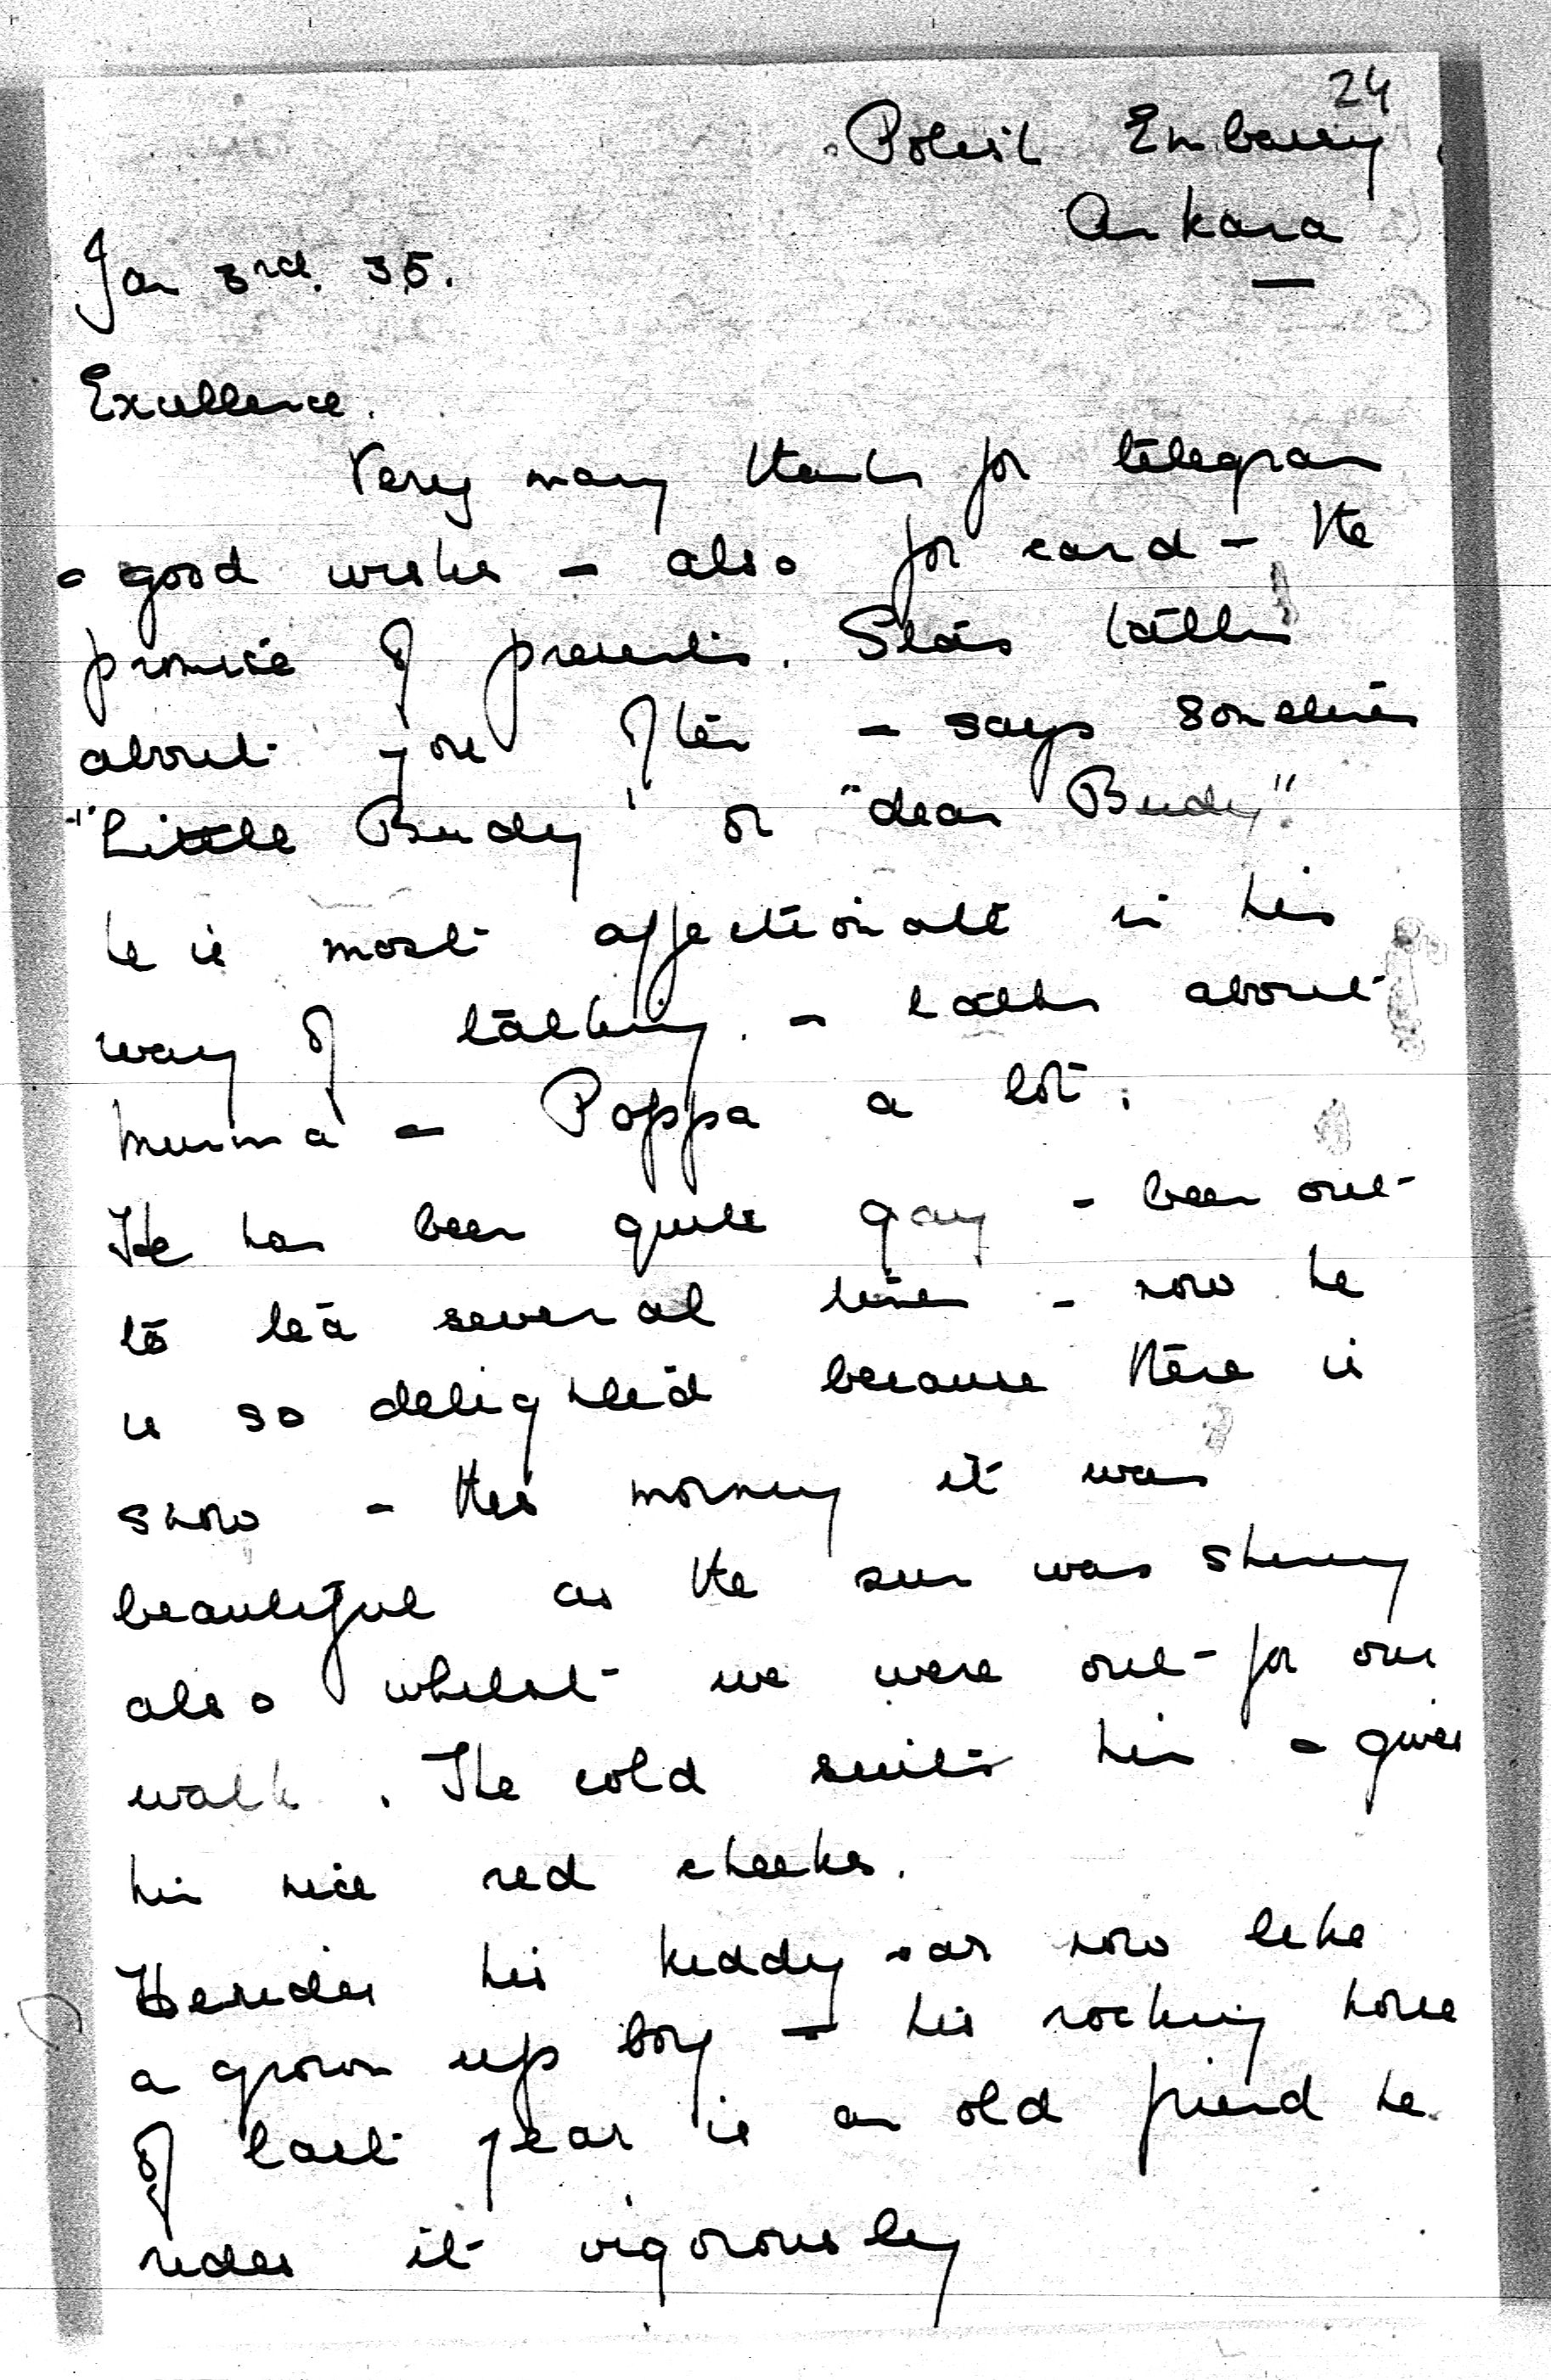 24
Polish Embassy
Ankara
Jan 3rd. 35.
Excellence.
Very many thanks for telegram
- good wishes - also for card - the
promise of presents. Stas talks
about you often - says sometimes
"Little Budy" or "dear Budy"
he is most affectionate in his
way of talking. - talks about
Mumma - Poppa a lot.
He has been quite gay - been out
to tea several times - now he
is so delighted because there is
snow - this morning it was
beautiful as the sun was shining
also whilst we were out for our
walk. The cold suits him - gives
him nice red cheeks.
He rides his kiddy car now like
a grown up boy - his rocking horse
of last year is an old friend he
rides it vigorously